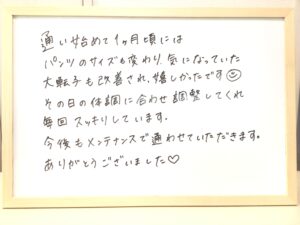 通い始めて1ヶ月頃には
パンツのサイズも変わり、気になっていた
大転子も改善され、嬉しかったです☺
その日の体調に合わせ調整してくれ
毎回スッキリしています。
今後もメンテナンスで通わせていただきます。
ありがとうございました♡